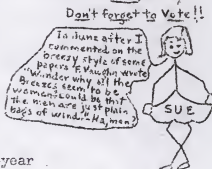 Don't forget to Vote!!
In June after I
commented on the
breezy style of some
papers F. Vaughn wrote
"Wonder why all the
Breezes seem to be
women. Could be that
the men are just plain
bags of wind." Ha, men?
SUE
year